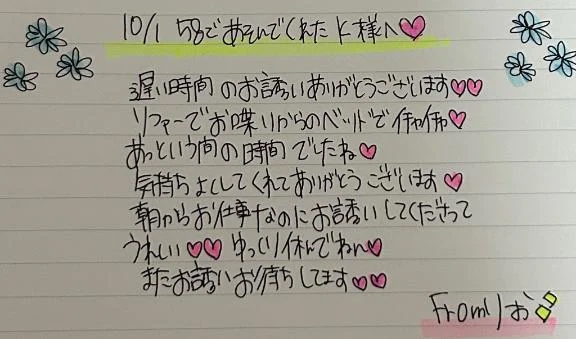 10/1 58であそんでくれたK様へ♡
遅い時間のお誘いありがとうございます♡♡
ソファーでお喋りからのベットでイチャイチャ♡
あっという間の時間でしたね♡
気持ちよくしてくれてありがとうございます♡
朝からお仕事なのにお誘いしてくださって
うれしい♡♡ ゆっくり休んでねん♡
またお誘いお待ちしてます♡♡
From りお